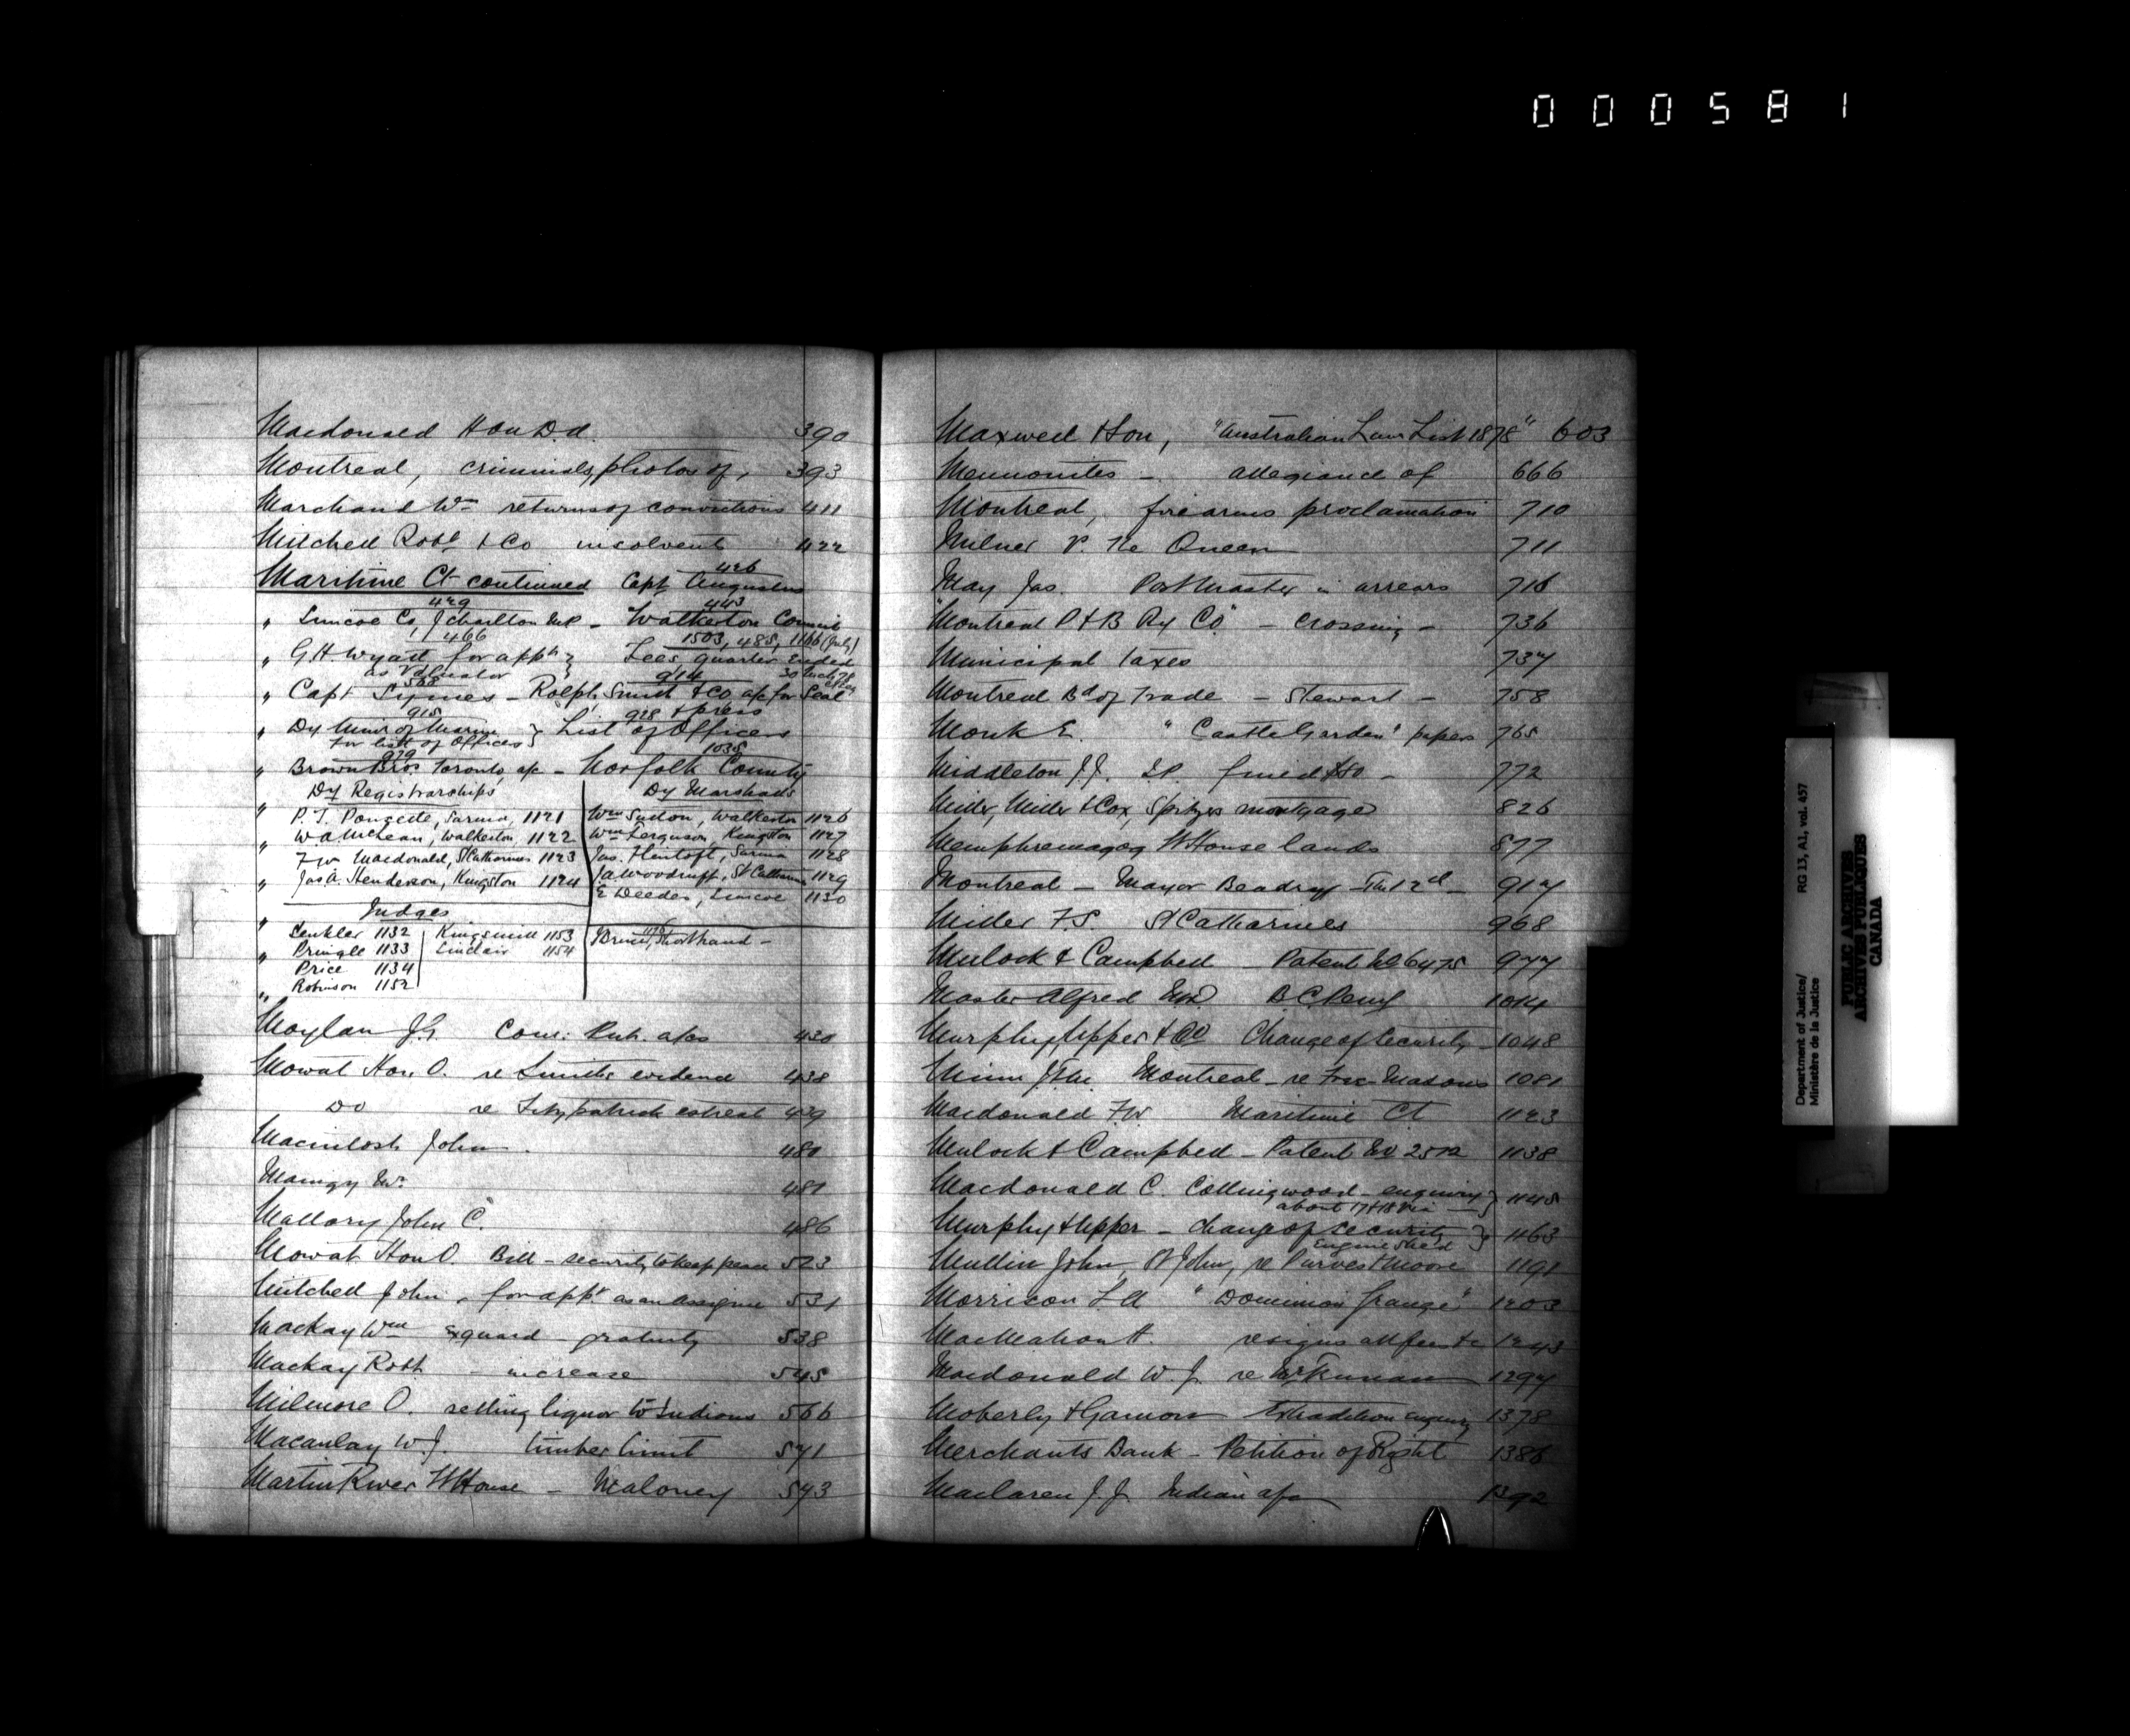 000581
Macdonald Hon D.A. 390
Montreal, criminals, photos of, 393
Marchand Wm returns of convictions 411
Mitchell Robt & Co insolvents 422
Maritime Ct continued Capt Augustus 426
" Simcoe Co, J Charlton M.P. 429 - Walkerton Council 443
" G.H. Wyatt for appt as Valuator 466 Fees, quarter Ended 30 1503, 485, 1166 (July)
" Capt Symes 568 - Rolph, Smith & Co a/c for Seal & press 914
" Dy Minr of Marine for list of Offices 915 } List of Officers 928
" Brown Bros Toronto, a/c 929 - Norfolk County 1035
" Dy Registrarships Dy Marshals
P. T. Poussette, Sarnia, 1121 Wm Sutton, Walkerton 1126
" W.A. McLean, Walkerton 1122 Wm Ferguson, Kingston 1127
F W Macdonald, St Catharines 1123 Jas. Flintoft, Sarnia 1128
" Jas A. Henderson, Kingston 1124 J.A. Woodruff, St Catharines 1129
E Deedes, Simcoe 1130
" Judges
Senkler 1132 Kingsmill 1153 Shorthand -
" Pringle 1133 Sinclair 1154
Price 1134
" Robinson 1152
Moylan J.G. a/cs 430
Mowat Hon O. re Smith's evidence 438
Do re Fitzpatrick estreat 439
Macintosh John 480
Maingy Wm 481
Mallory John C. 486
Mowat Hon O. Bill - security to keep peace 523
Mitchell John, for appt as an Assignee 531
Mackay Wm Exguard - gratuity 538
Mackay Robt. - increase 545
Milmore O. selling liquor to Indians 566
Macaulay W.J. timber limit 571
Martin River W House - Maloney 543
Maxwell & Son, "Australian Law List 1878" 603
Mennonites - allegiance of 666
Montreal, firearms proclamation 710
Milner v. The Queen 711
May Jas. Postmaster in arrears 716
"Montreal P & B Ry Co" - crossing - 736
Municipal taxes 737
Montreal Bd of Trade - Stewart - 758
Monk E. "Castle Garden" papers 765
Middleton J.J. fined $80 - 772
Miller, Miller & Cox, Spitzes mortgage 826
Memphremagog W House lands 877
Montreal - Mayor Beaudry - The 12th - 917
Miller F.S. St Catharines 968
Mulock & Campbell - Patent No 6475 977
Master Alfred B C Peny 1014
Murphy, Upper & Co Change of Security - 1048
Minn Jno. Montreal - re Free Masons 1081
Macdonald F.W. Maritime Ct 1123
Mulock & Campbell - Patent No 2572 1138
Macdonald C. Collingwood - enquiry about 17 & 18 Vic } 1145
Murphy & Upper - change of security Engine Shed } 1163
Mullin John, St John, re Purves & Moore 1191
Morrison L A "Dominion Grange" 1203
MacMahon H. resigns all fees &c 1243
Macdonald W. J. re McKinnon 1297
Moberly & Gamon Extradition enquiry 1378
Merchants Bank - Petition of Right 1386
Maclaren J.J. Indian a/c 1392
Department of Justice/ RG 13, A1, vol. 457
Ministère de la Justice
PUBLIC ARCHIVES
ARCHIVES PUBLIQUES
CANADA